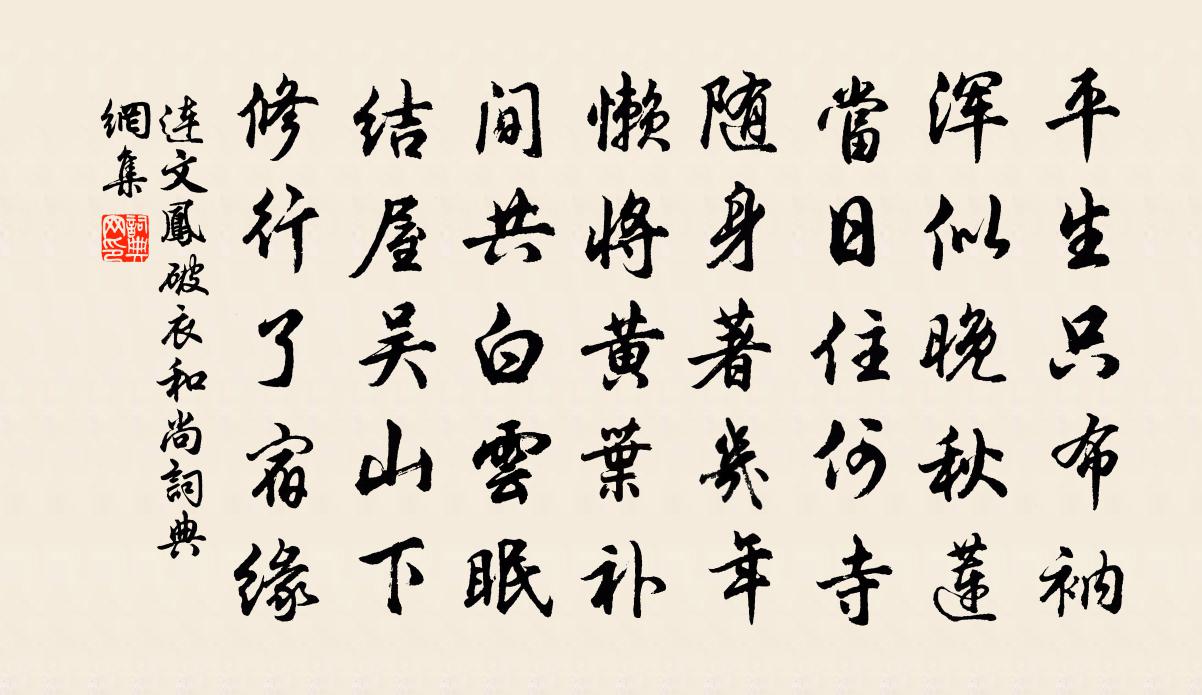 平生只布衲
浑似晚秋蓮
當日住何寺
随身著幾年
懒將黄葉补
间共白雲眠
结屋吴山下
修行了宿缘
连文鳳破衣和尚詞典
網集
詞典
网印